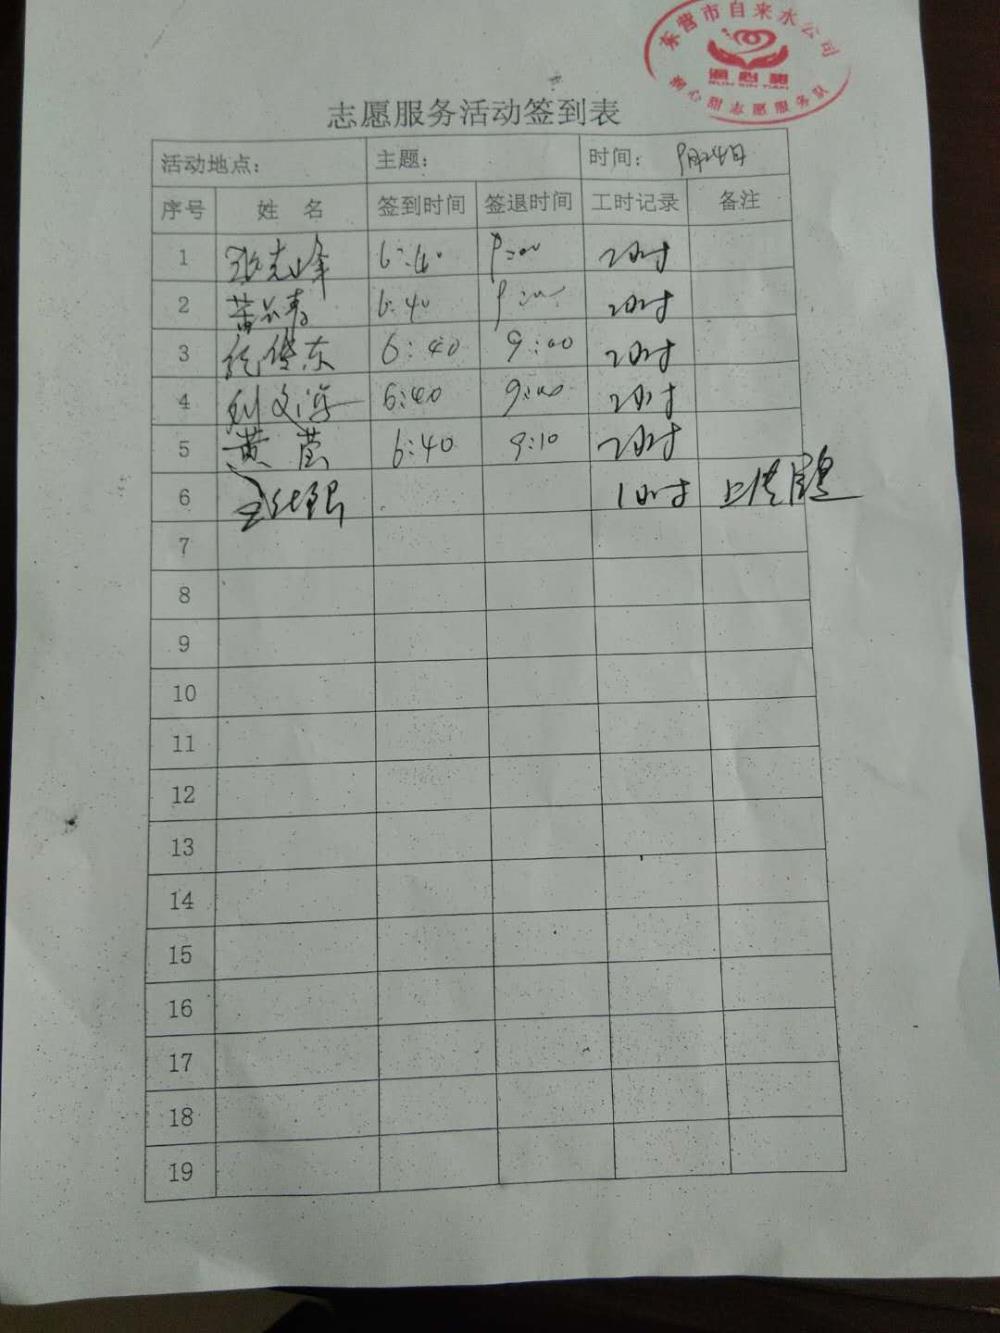 东营市自来水公司
润心甜
RUN XIN TIAN
润心甜志愿服务队
志愿服务活动签到表
活动地点: 主题: 时间: 9月24日
序号 姓 名 签到时间 签退时间 工时记录 备注
1 张志峰 6:40 9:00 2小时
2 6:40 9:00 2小时
3 6:40 9:00 2小时
4 刘文海 6:40 9:00 2小时
5 黄莹 6:40 9:10 2小时
6 1小时 上传信息
7
8
9
10
11
12
13
14
15
16
17
18
19